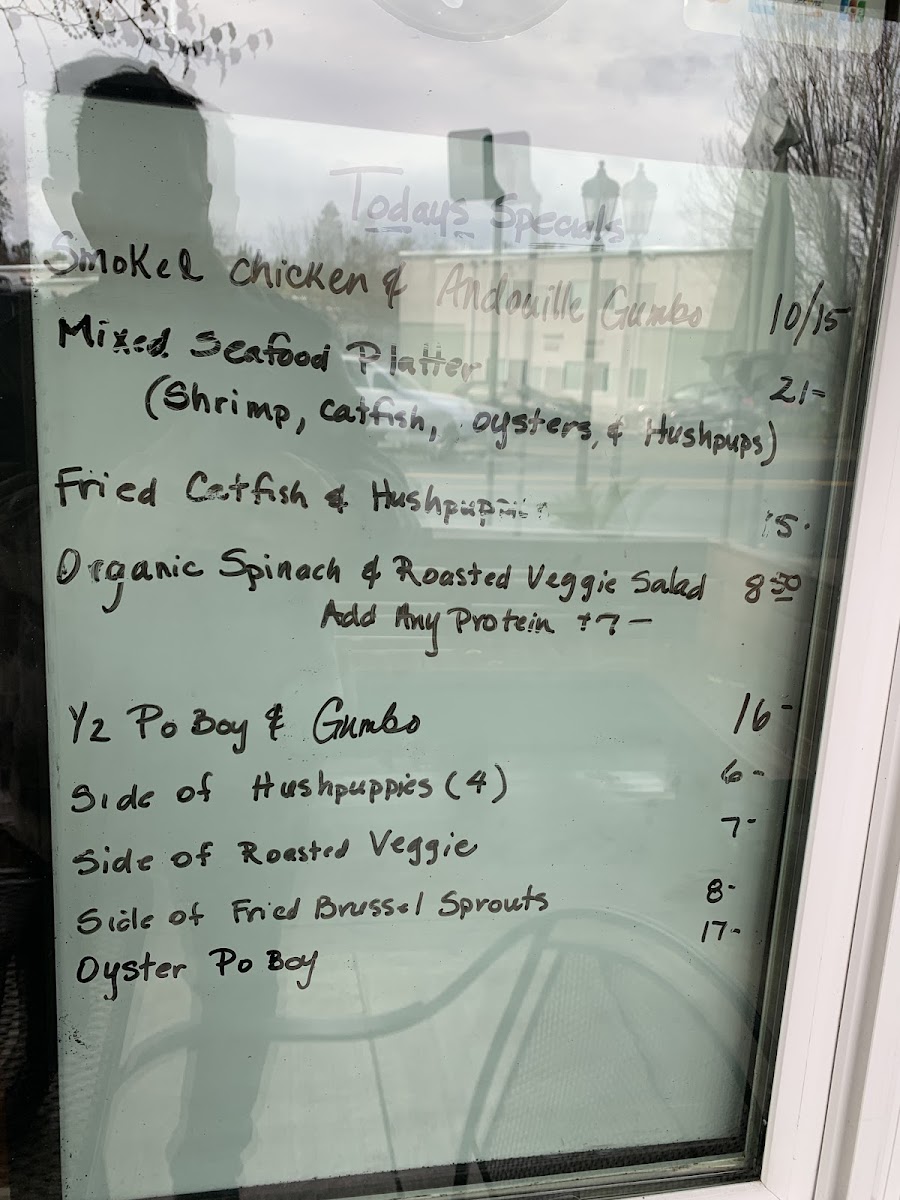 Todays Specials
Smoked Chicken & Andouille Gumbo 10/15
Mixed Seafood Platter 21-
(Shrimp, catfish, oysters, & Hushpups)
Fried Catfish & Hushpuppies 15-
Organic Spinach & Roasted Veggie Salad 8.50
Add Any Protein +7-
1/2 Po Boy & Gumbo 16-
Side of Hushpuppies (4) 6-
Side of Roasted Veggie 7-
Side of Fried Brussel Sprouts 8-
Oyster Po Boy 17-